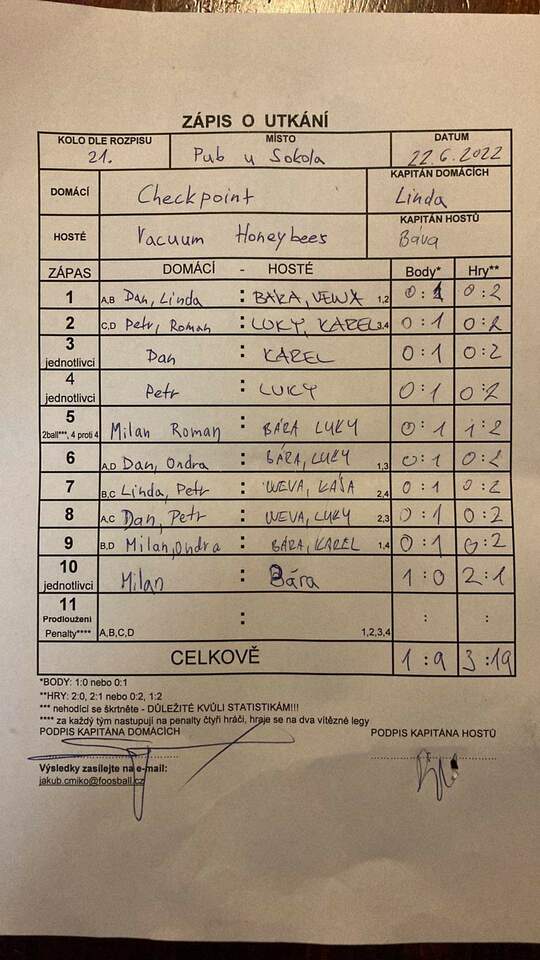 ZÁPIS O UTKÁNÍ
KOLO DLE ROZPISU MÍSTO DATUM
21. Pub u Sokola 22.6.2022
DOMÁCÍ Checkpoint KAPITÁN DOMÁCÍCH Linda
HOSTÉ Vacuum Honeybees KAPITÁN HOSTŮ Bára
ZÁPAS DOMÁCÍ - HOSTÉ Body* Hry**
1 A,B Dan, Linda : BÁRA, 1,2 0:1 0:2
2 C,D Petr, Roman : LUKY, KAREL 3,4 0:1 0:2
3 jednotlivci Dan : KAREL 0:1 0:2
4 jednotlivci Petr : LUKY 0:1 0:2
5 2ball***, 4 proti 4 Milan Roman : BÁRA LUKY 0:1 1:2
6 A,D Dan, Ondra : BÁRA, LUKY 1,3 0:1 0:2
7 B,C Linda, Petr : KÁŠA 2,4 0:1 0:2
8 A,C Dan, Petr : LUKY 2,3 0:1 0:2
9 B,D Milan, Ondra : BÁRA, KAREL 1,4 0:1 0:2
10 jednotlivci Milan : Bára 1:0 2:1
11 Prodloužení Penalty**** A,B,C,D : 1,2,3,4 : :
CELKOVĚ 1:9 3:19
*BODY: 1:0 nebo 0:1
**HRY: 2:0, 2:1 nebo 0:2, 1:2
*** nehodící se škrtněte - DŮLEŽITÉ KVŮLI STATISTIKÁM!!!
**** za každý tým nastupují na penalty čtyři hráči, hraje se na dva vítězné legy
PODPIS KAPITÁNA DOMÁCÍCH PODPIS KAPITÁNA HOSTŮ
Výsledky zasílejte na e-mail:
jakub.cmiko@foosball.cz